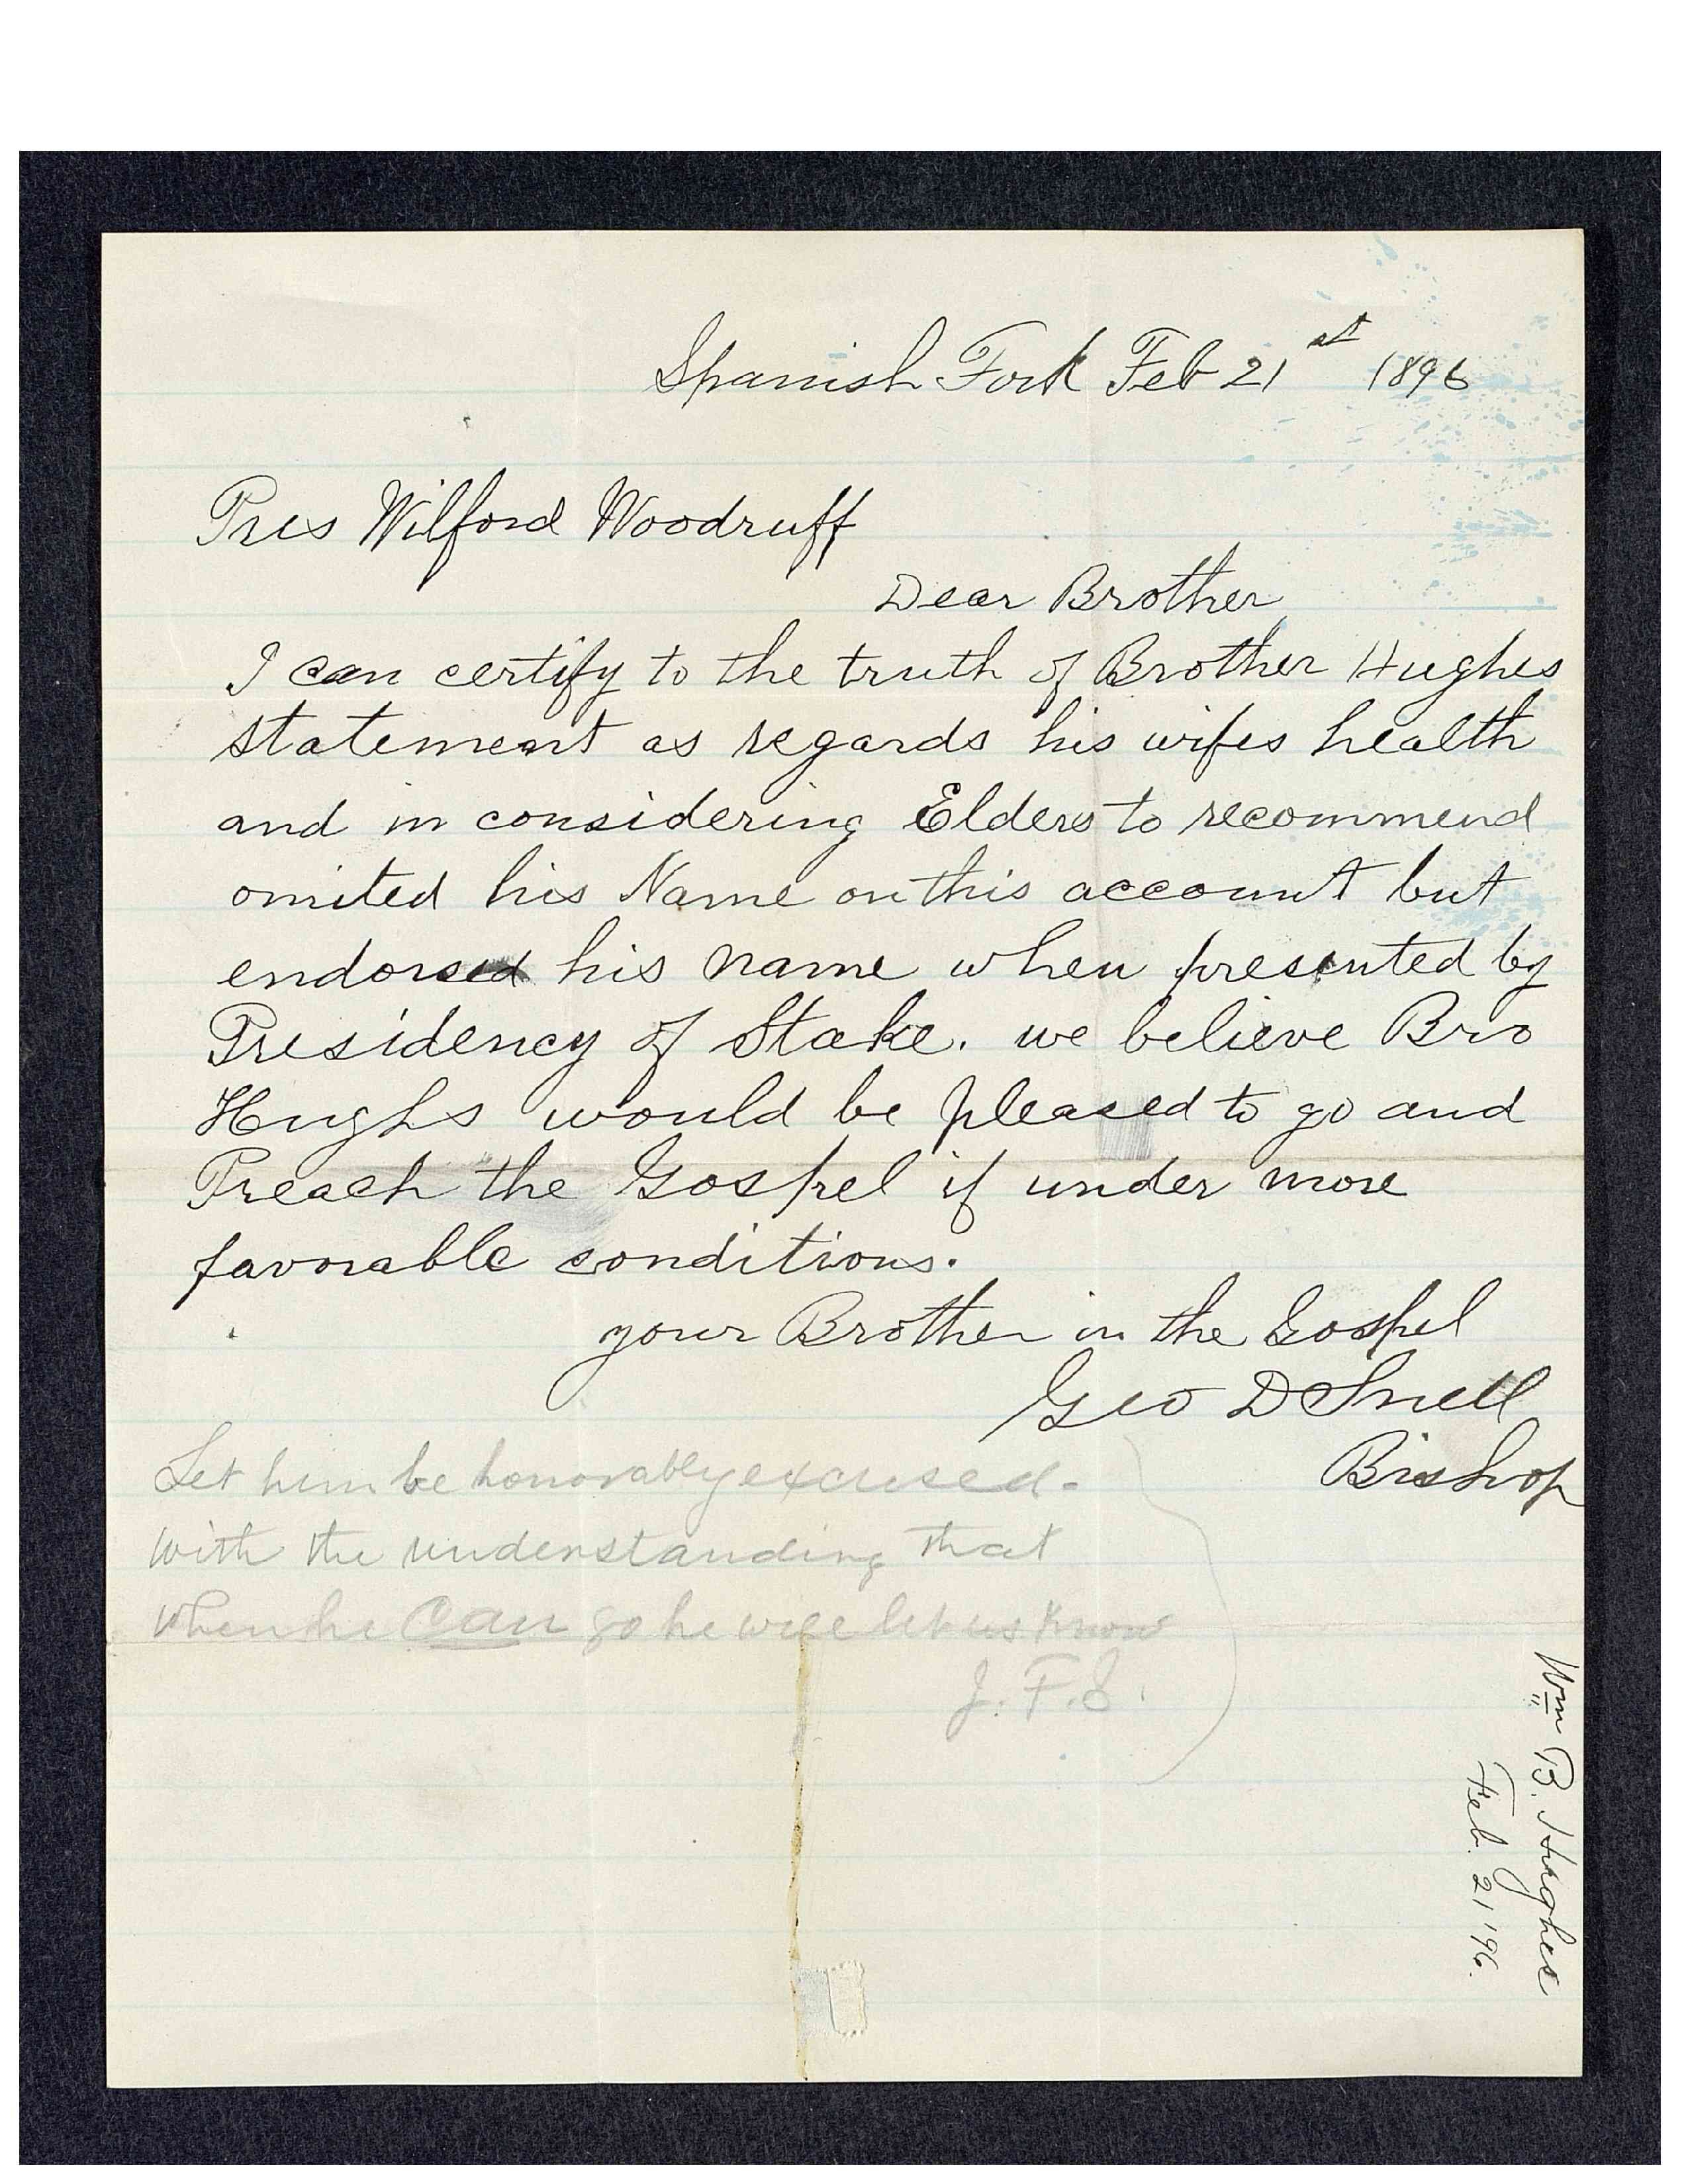 Spanish Fork Feb 21st 1896
Pres Wilford Woodruff
Dear Brother
I can certify to the truth of Brother Hughes
statement as regards his wifes health
and in considering Elders to recommend
omited his Name on this account but
endorsed his name when presented by
Presidency of Stake. we believe Bro
Hughs would be pleased to go and
Preach the Gospel if under more
favorable conditions.
your Brother in the Gospel
Geo D Snell
Bishop
Let him be honorably excused -
with the understanding that
when he can go he will let us know
J. F. S.
Wm B. Hughes
Feb. 21 '96.